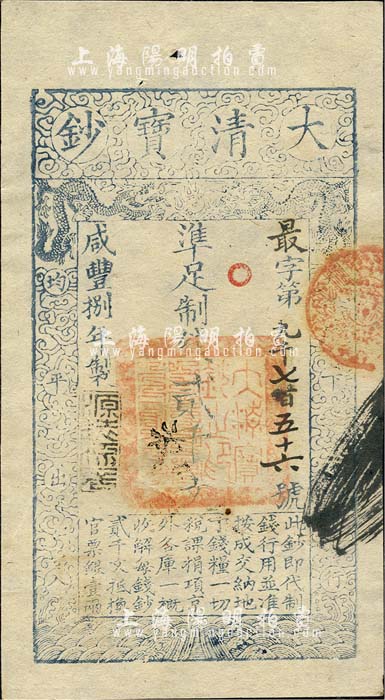 上海陽明拍賣
www.yangmingauction.com
大清寶鈔
最字第九千七百五十六號
準足制錢貳千文
咸豐捌年製
上海陽明拍賣
www.yangmingauction.com
均平出入
下行
此鈔即代制
錢行用並准
按成交納地
丁錢糧一切
稅課捐項京
外各庫一概
收解每錢鈔
貳千文抵換
官票銀壹兩
上海陽明拍賣
www.yangmingauction.com